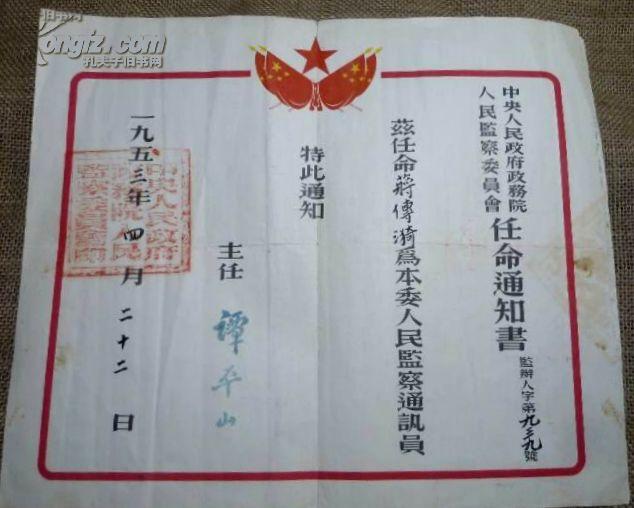 中央人民政府政務院
人民監察委員會
任命通知書
監辦人字第九三九號
茲任命蔣傳漪爲本委人民監察通訊員
特此通知
主任 譚平山
一九五三年四月二十二日
中央人民政府
政務院人民
監察委員會印
ongiz.com
孔夫子旧书网